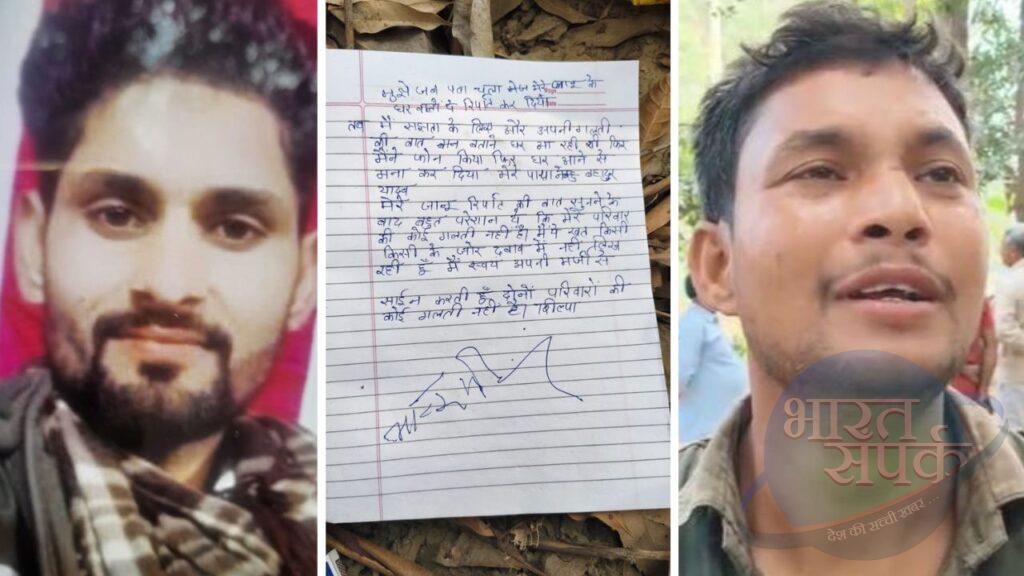 मुझे जब पता चला मेरे जान के
घर वालो ने रिपोर्ट कर दिया
तब मैं राजीनामा के लिए और अपनी गलती
की बात मान बताने घर आ रही थी फिर
मैने फोन किया फिर घर आने से
मना कर दिया मेरे पापा बहादुर
यादव
मेरे जान रिपोर्ट की बात सुनने के
बाद बहुत परेशान थे कि मेरे परिवार
की कोई गलती नहीं है मैं ये खत किसी
किसी के जोर दबाव में नहीं लिख
रही हूँ मैं स्वयं अपनी मर्जी से
साईन करती हूँ दोनों परिवारों की
कोई गलती नहीं है। शिल्पा
भारत
संपर्क
देश की सच्ची खबर ...